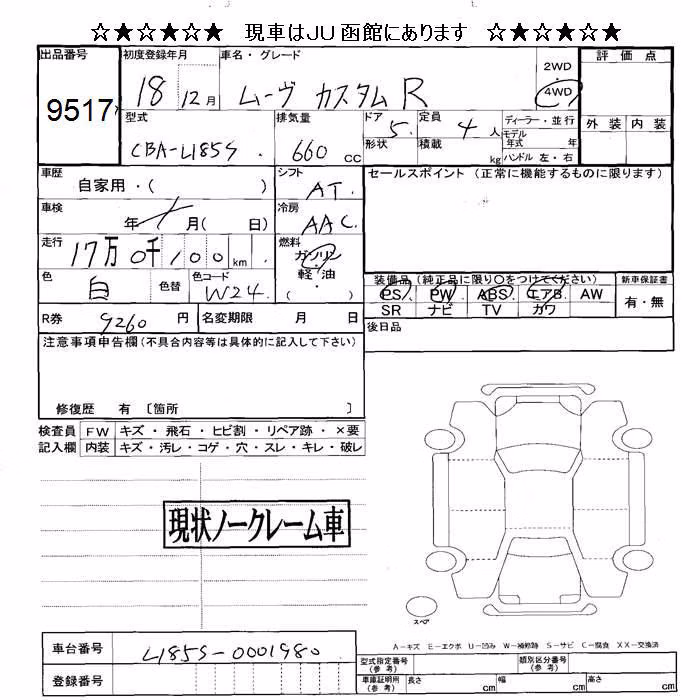 ☆★☆★☆★ 現車はJU函館にあります ☆★☆★☆★
出品番号 初度登録年月 車名・グレード 2WD 評価点
9517 18 12月 ムーヴ カスタム R 4WD
型式 排気量 ドア 5 定員 ディーラー・並行 外装 内装
モデル
CBA-L185S 660cc 形状 積載 4人 年式 年
kg ハンドル 左・右
車歴 自家用・( ) シフト AT セールスポイント (正常に機能するものに限ります)
車検 年 月( 日) 冷房 AAC
走行 17万0千100km 燃料 ガソリン
色 白 色替 色コード W24 軽油 ( ) 装備品(純正品に限り〇をつけてください) 新車保証書
PS PW ABS エアB AW 有・無
R券 9260円 名変期限 月 日 SR ナビ TV カワ
後日品
注意事項申告欄(不具合内容等は具体的に記入して下さい)
修復歴 有 〔箇所 〕
検査員 FW キズ・飛石・ヒビ割・リペア跡・×要
記入欄 内装 キズ・汚レ・コゲ・穴・スレ・キレ・破レ
現状ノークレーム車
スペア
A-キズ E-エクボ U-凹み W-補修跡 S-サビ C-腐食 XX-交換済
車台番号 L185S-0001980
型式指定番号(参考) 類別区分番号(参考)
登録番号 車庫証明用(参考) 長さ cm 幅 cm 高さ cm